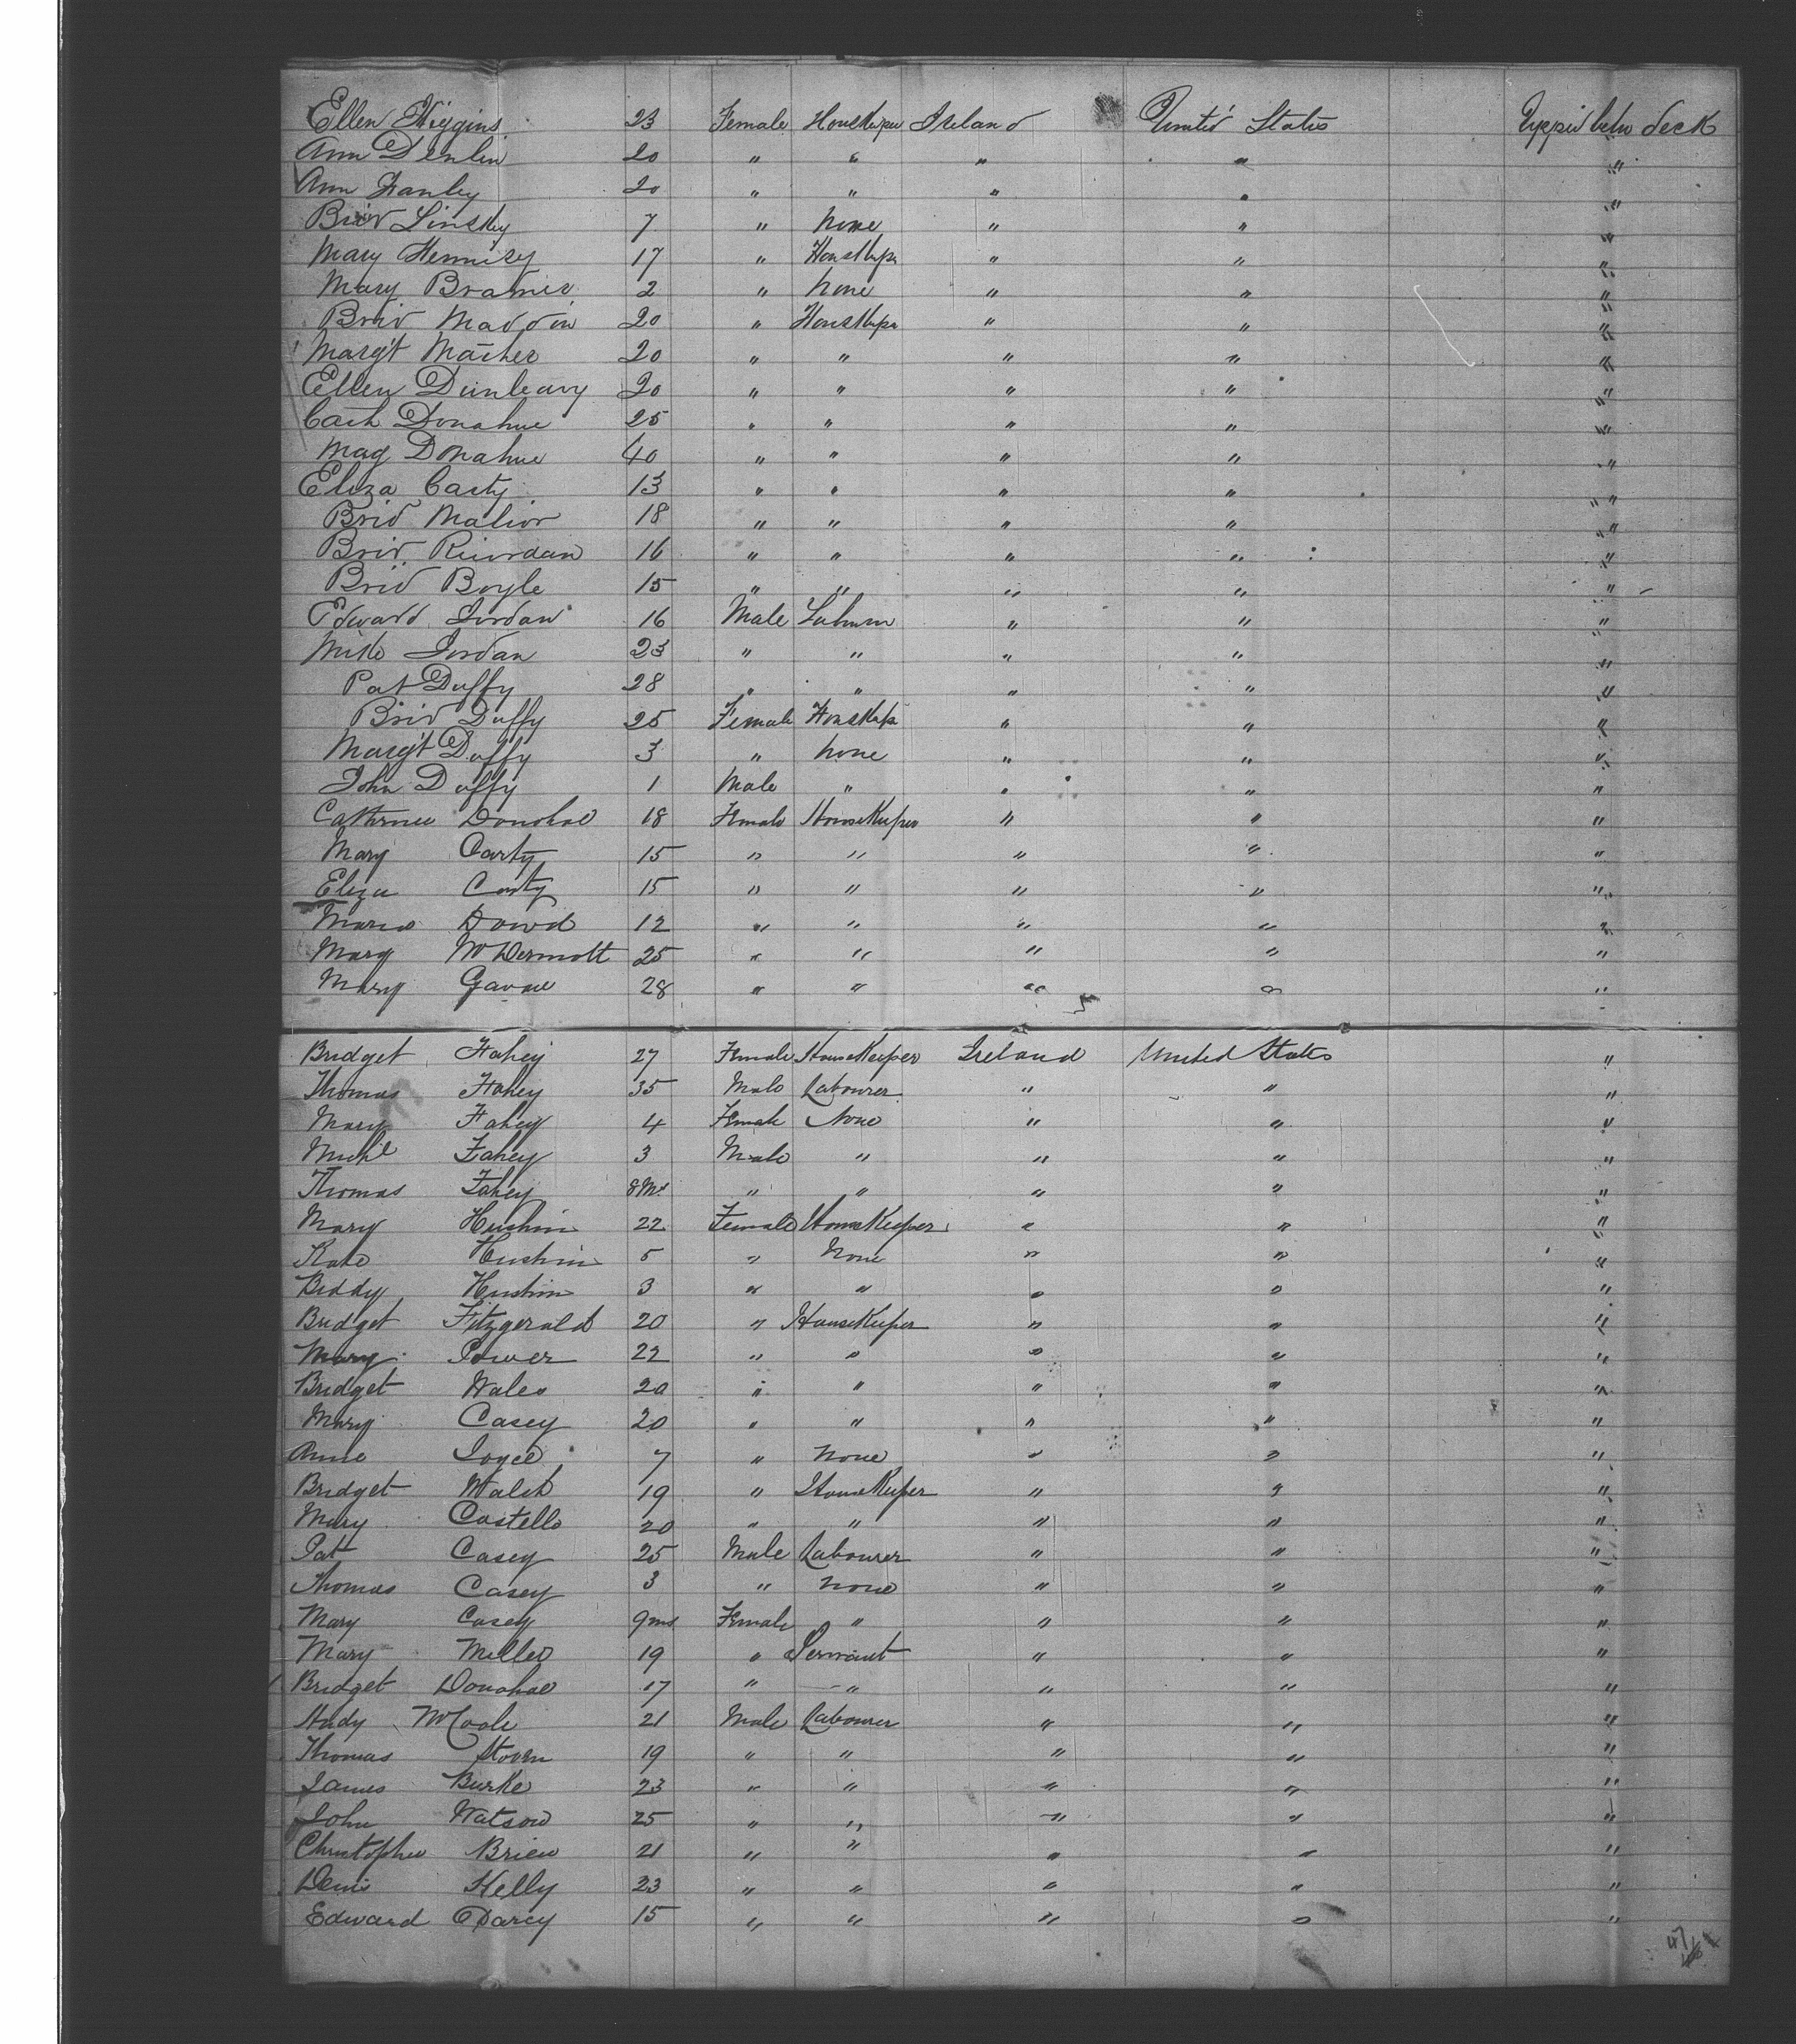 Ellen Higgins 23 Female Housekeper Ireland United States Upper betw deck
Ann Denlin 20 " " " " "
Ann Hanley 20 " " " " "
Brid Linskey 7 " None " " "
Mary Hennisy 17 " Houskepr " " "
Mary Bramer 2 " None " " "
Brid Maddin 20 " Houskepr " " "
Margt Maher 20 " " " " "
Ellen Dunleavy 20 " " " " "
Cath Donahue 25 " " " " "
Mag Donahue 40 " " " " "
Eliza Casty 13 " " " " "
Brid 18 " " " " "
Brid Riordan 16 " " " " "
Brid Boyle 15 " " " " "
Edward Jordan 16 Male " " "
Mike Jordan 23 " " " " "
Pat Duffy 28 " " " " "
Brid Duffy 25 Female Houskepr " " "
Margt Duffy 3 " None " " "
John Duffy 1 Male " " " "
Catherine Donohoe 18 Female HouseKeeper " " "
Mary Carty 15 " " " " "
Eliza Carty 15 " " " " "
Maria Dowd 12 " " " " "
Mary McDermott 25 " " " " "
Mary 28 " " " " "
Bridget Fahey 27 Female HouseKeeper Ireland United States "
Thomas Fahey 35 Male Labourer " " "
Mary Fahey 4 Female None " " "
Michl Fahey 3 Male " " " "
Thomas Fahey 8 Ms " " " " "
Mary Heushin 22 Female HouseKeeper " " "
Kate Heushin 5 " None " " "
Biddy Heushin 3 " " " " "
Bridget Fitzgerald 20 " HouseKeeper " " "
Mary Power 22 " " " " "
Bridget Wales 20 " " " " "
Mary Casey 20 " " " " "
Anne Joyce 7 " None " " "
Bridget Walsh 19 " HouseKeeper " " "
Mary Costello 20 " " " " "
Pat Casey 25 Male Labourer " " "
Thomas Casey 3 " None " " "
Mary Casey 9 ms Female " " " "
Mary Miller 19 " Servant " " "
Bridget Donohoe 17 " " " " "
Andy McCoole 21 Male Labourer " " "
Thomas 19 " " " " "
James Burke 23 " " " " "
John Watson 25 " " " " "
Christopher Brien 21 " " " " "
Denis Kelly 23 " " " " "
Edward Darcy 15 " " " " "